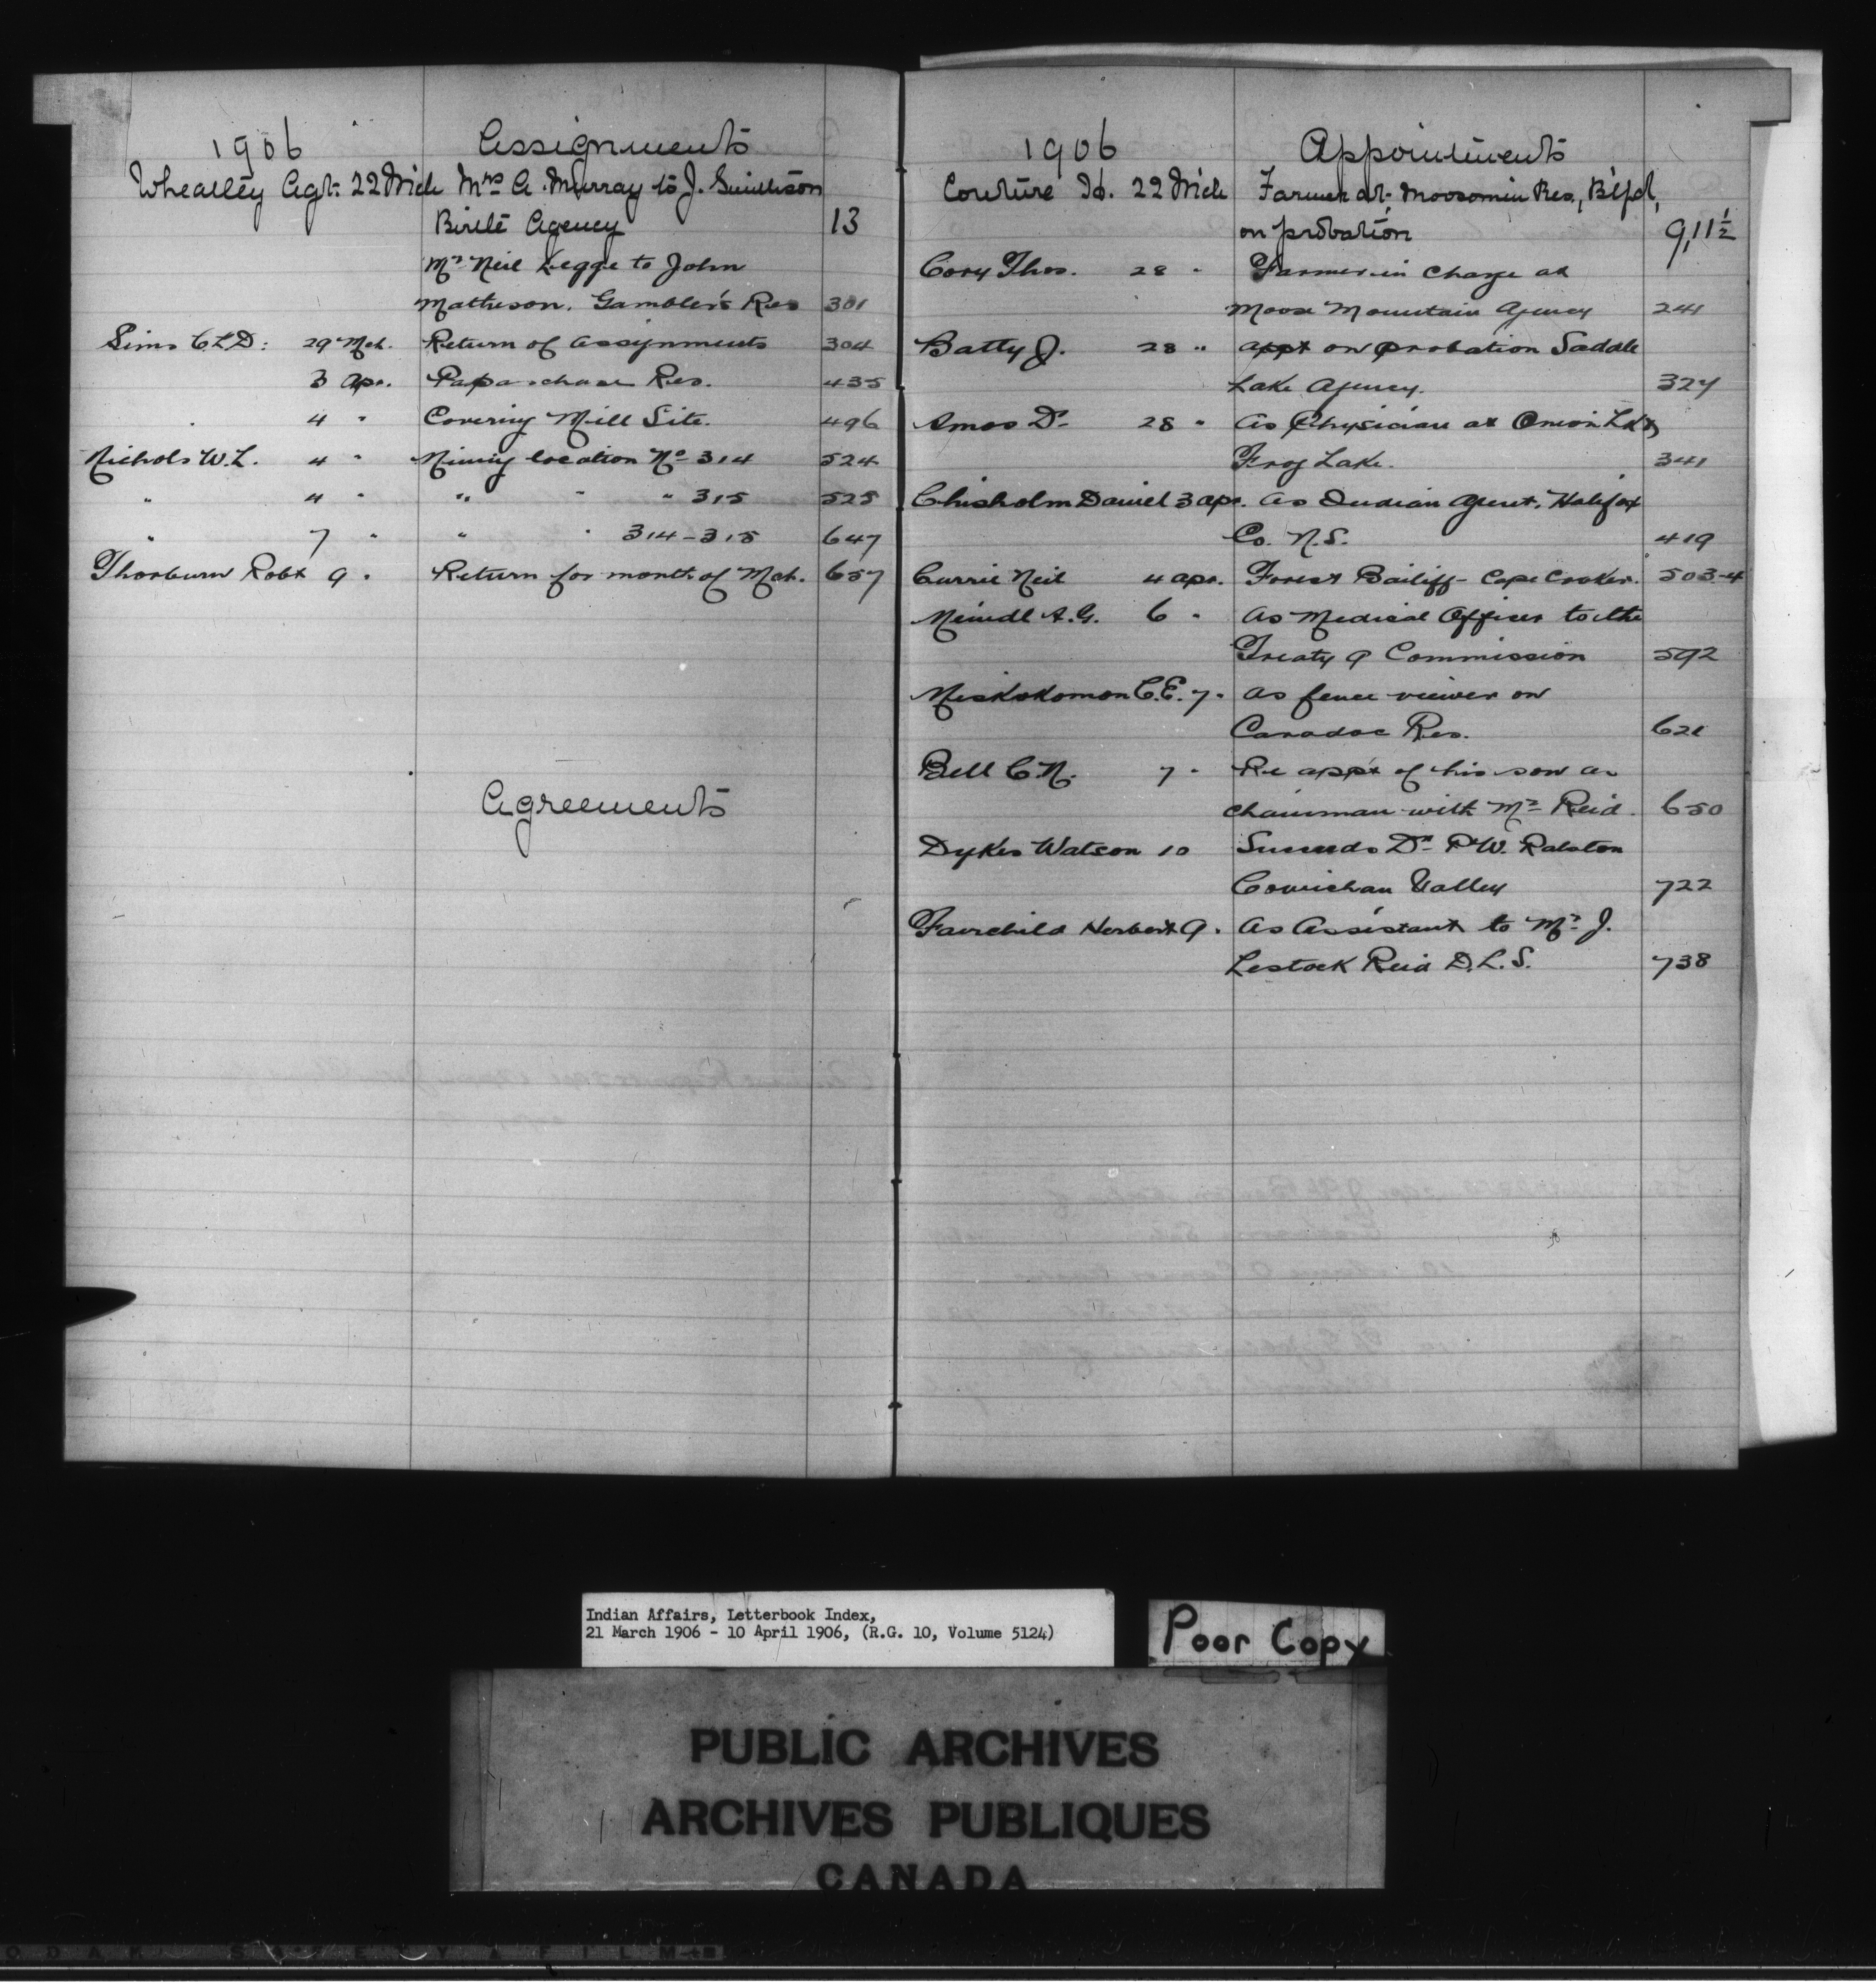 1906 Assignments
Wheatley Agt. 22 Mch Mrs A. Murray to J.
Birtle Agency 13
Mr Neil Legge to John
Matheson. Gambler's Res 301
Sims C.L.D. 29 Mch. Return of assignments 304
3 Apr. Papaschase Res. 435
4 " Covering Mill Site. 496
Nichols W.L. 4 " Mining location No 314 524
" 4 " " " " 315 525
" 7 " " " 314-315 647
Thorburn Robt 9 " Return for month of Mch. 657
Agreements
1906 Appointments
Couture Jd. 22 Mch Farmer at Moosomin Res., B'fd,
on probation 9,11½
Cory Thos. 28 " Farmer in charge at
Moose Mountain Agency 241
Batty J. 28 " appt on probation Saddle
Lake Agency. 327
Amos Dr 28 " As Physician at Onion Lk &
Frog Lake. 341
Chisholm Daniel 3 apr. As Indian Agent, Halifax
Co. N.S. 419
Currie Neil 4 apr. Forest Bailiff - Cape Croker. 503-4
Meindl A.G. 6 " As Medical Officer to the
Treaty 9 Commission 592
Miskokomon C.E. 7 " As fence viewer on
Caradoc Res. 621
Bell C.N. 7 " Re appt of his son as
chainman with Mr Reid. 650
Dykes Watson 10 Succeeds Dr P.W. Ralston
Cowichan Valley 722
Fairchild Herbert 9 " As Assistant to Mr J.
Lestock Reid D.L.S. 738
Indian Affairs, Letterbook Index,
21 March 1906 - 10 April 1906, (R.G. 10, Volume 5124)
Poor Copy
PUBLIC ARCHIVES
ARCHIVES PUBLIQUES
CANADA